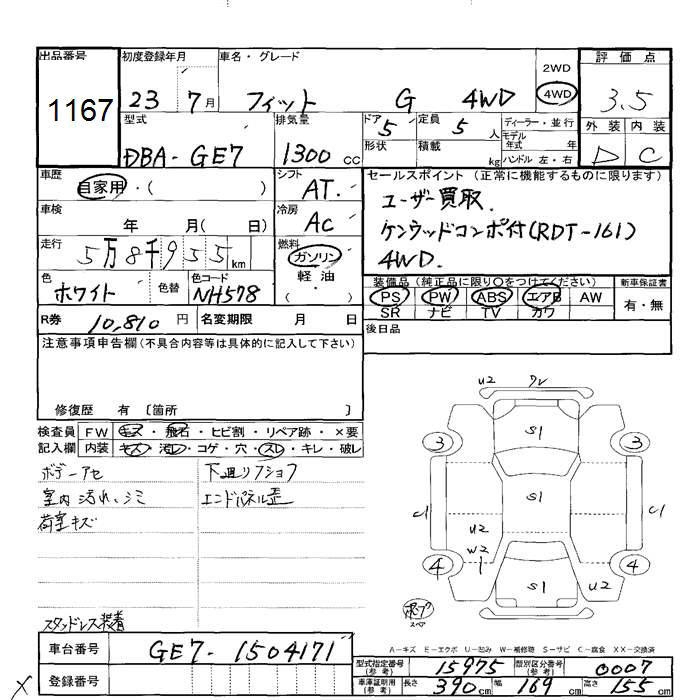 出品番号 初度登録年月 車名・グレード 2WD 評価点
1167 23 7月 フィット G 4WD 4WD 3.5
型式 排気量 ドア 5 定員 5 人 ディーラー・並行 外装 内装
DBA-GE7 1300 cc 形状 積載 kg モデル年式 年 D C
ハンドル 左・右
車歴 自家用・( ) シフト AT セールスポイント (正常に機能するものに限ります)
車検 年 月( 日) 冷房 AC ユーザー買取.
走行 5万8千955 km 燃料 ガソリン ケンウッドコンポ付(RDT-161)
軽油 4WD.
色 ホワイト 色替 色コード NH578 ( ) 装備品 (純正品に限り○をつけてください) 新車保証書
PS PW ABS エアB AW 有・無
SR ナビ TV カワ
R券 10,810 円 名変期限 月 日 後日品
注意事項申告欄 (不具合内容等は具体的に記入して下さい)
修復歴 有 〔箇所 〕
検査員 FW キズ・飛石・ヒビ割・リペア跡・×要
記入欄 内装 キズ・汚レ・コゲ・穴・スレ・キレ・破レ
ボデーアセ 下廻リアショフ
室内汚れ、シミ エンドパネル歪
荷室キズ
スタッドレス装着
U2 ワレ
S1
3 3
S1
C1 C1
U2
W2
1
4 4
S1 U2
スペア
A-キズ E-エクボ U-凹み W-補修跡 S-サビ C-腐食 XX-交換済
車台番号 GE7-1504171
型式指定番号 (参考) 15975 類別区分番号 (参考) 0007
登録番号
車庫証明用 (参考) 長さ 390 cm 幅 169 cm 高さ 155 cm
X